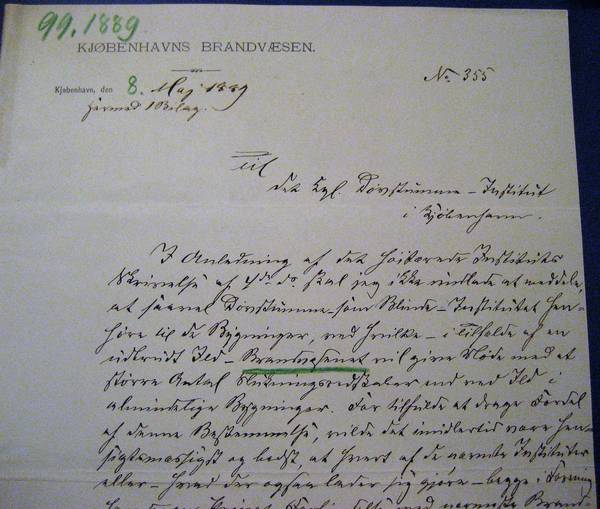 99.1889
KJØBENHAVNS BRANDVÆSEN.
No 355
Kjøbenhavn, den 8. Maj 1889
hermed 1 Bilag.
Til
det Kgl. Døvstumme-Institut
i Kjøbenhavn.
I Anledning af det høitærede Instituts
Skrivelse af 4de ds skal jeg ikke undlade at meddele,
at saavel Døvstumme- som Blinde-Institutet hen-
høre til de Bygninger, ved hvilke - i Tilfælde af en
udbrudt Ild - Brandvæsenet vil give Møde med et
større Antal Slukningsredskaber end ved Ild i
almindelige Bygninger. For tilfulde at drage Fordel
af denne Bestemmelse, vilde det imidlertid være hen-
sigtsmæssigst og bedst, at hvert af de nævnte Instituter
eller - hvad der ogsaa lader sig gjøre - begge i Forening